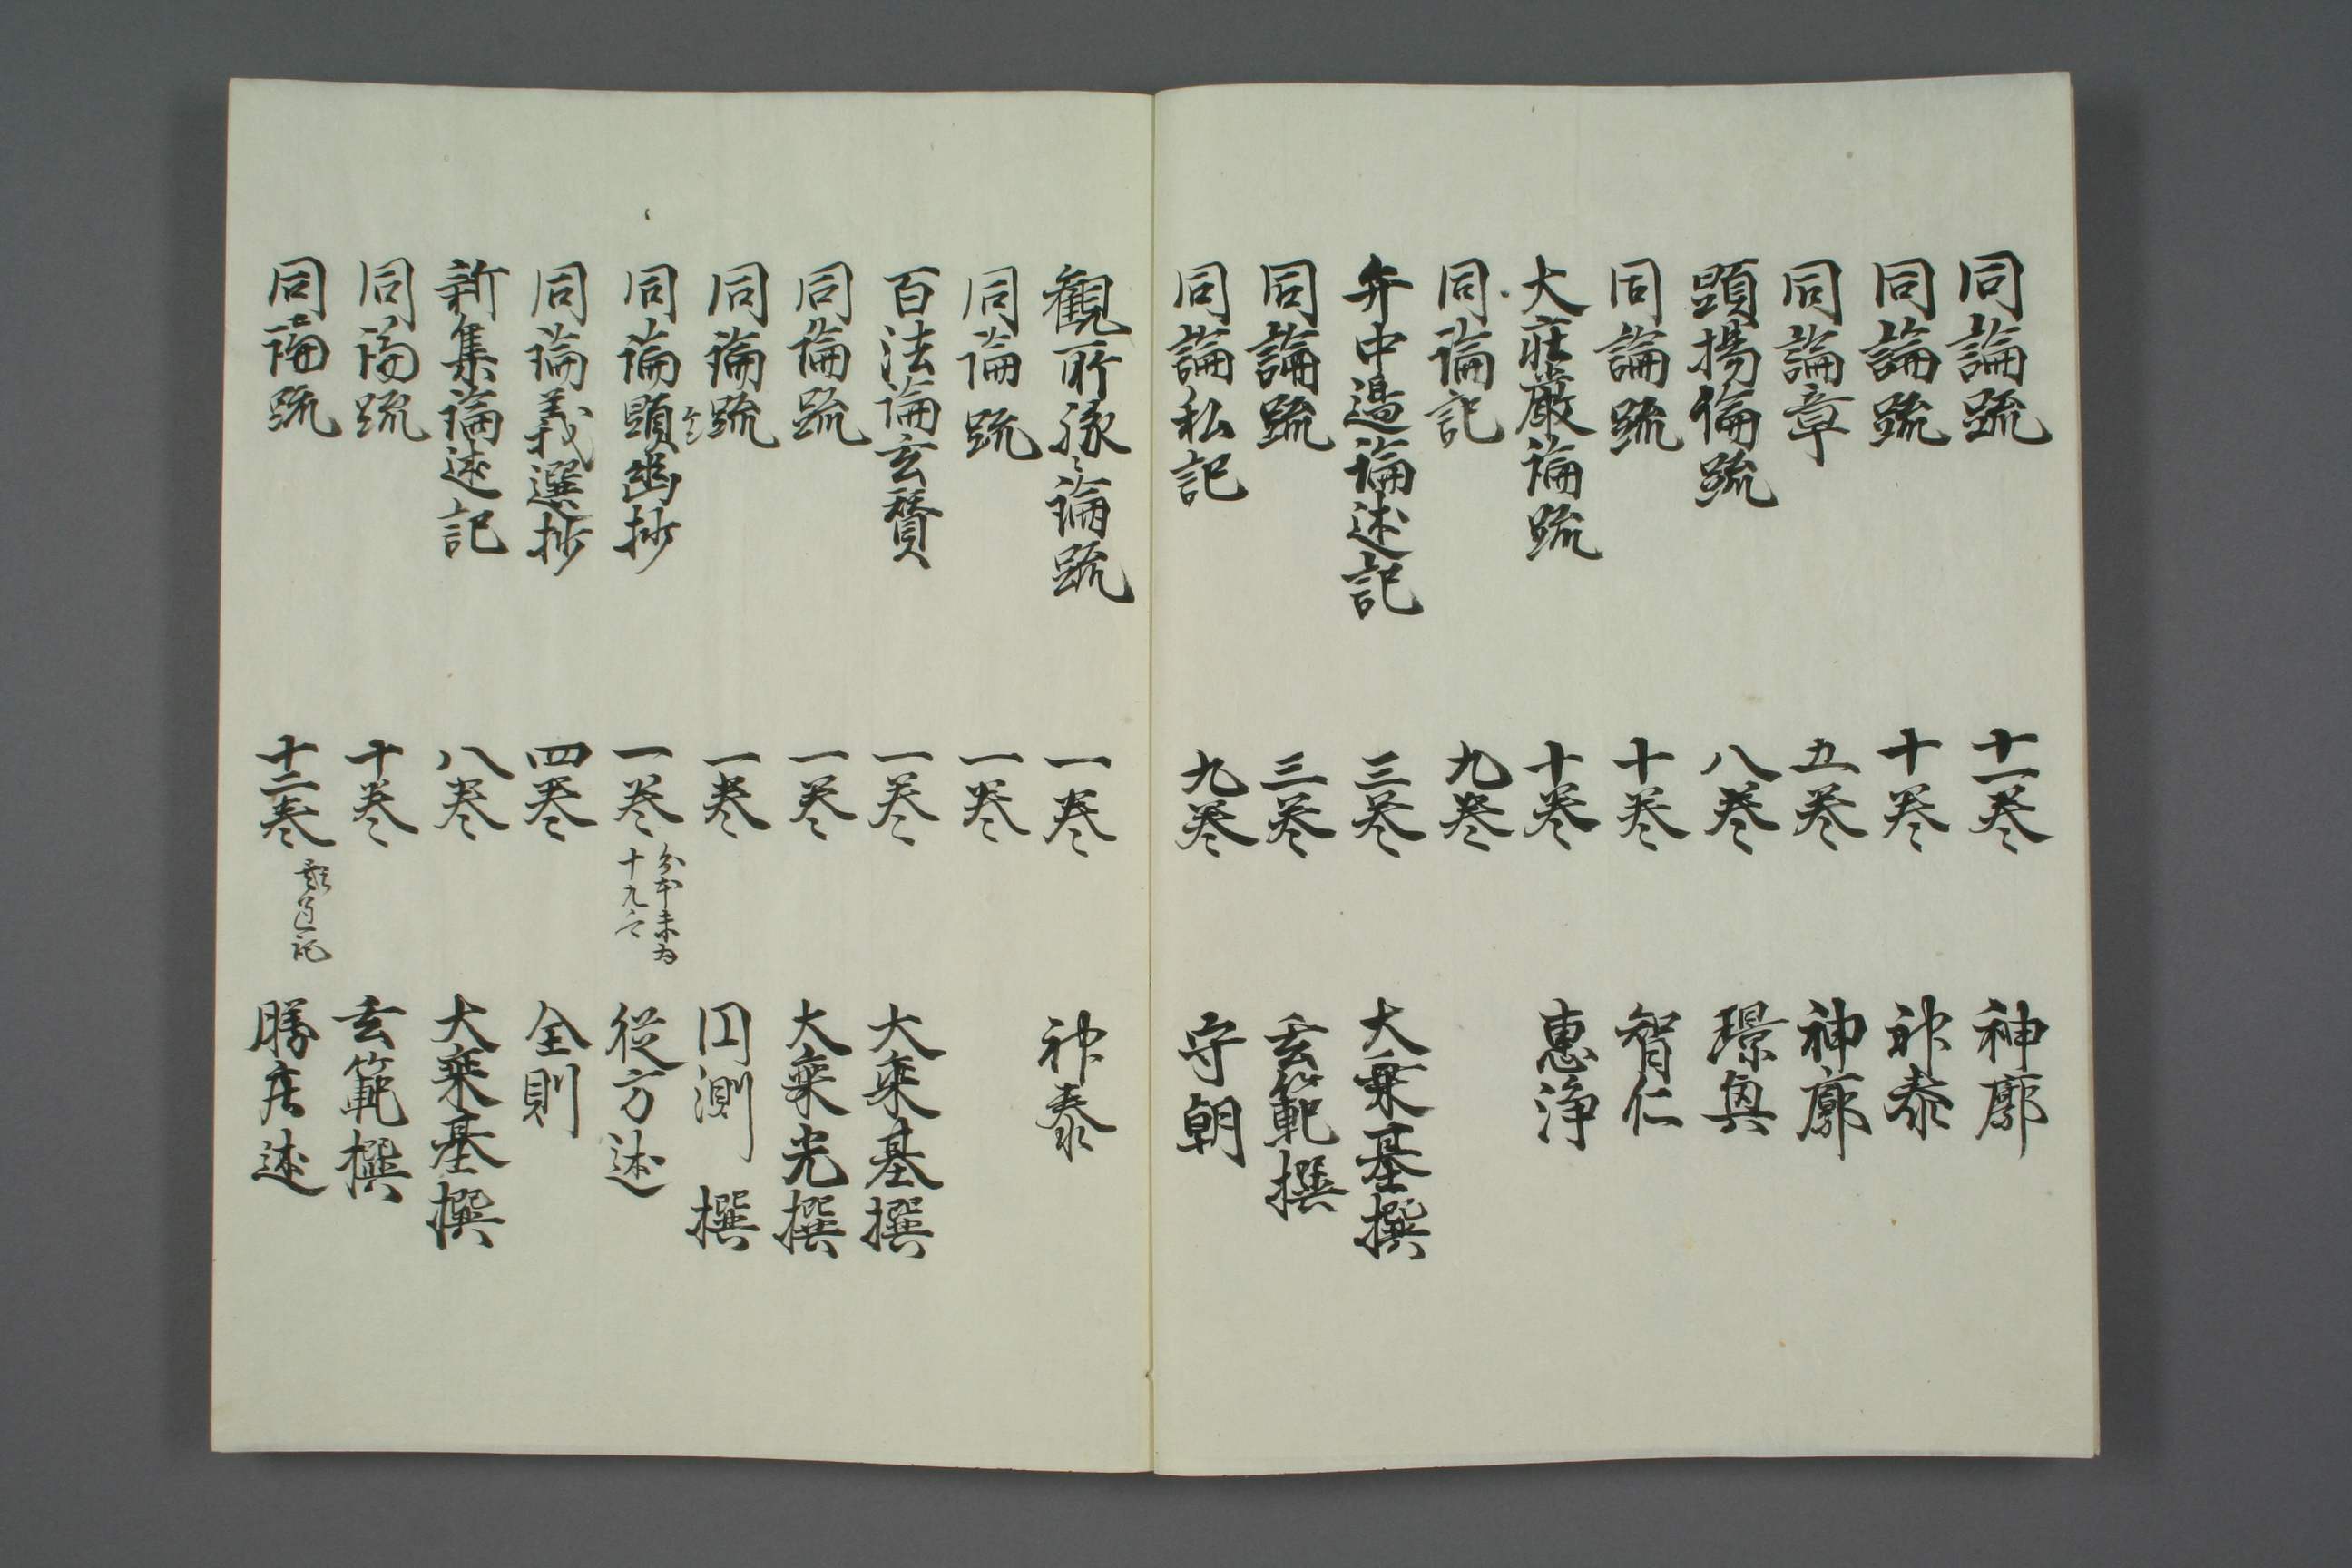 同論疏 十一巻 神廓
同論疏 十巻 神泰
同論章 五巻 神廓
顕揚論疏 八巻 璟興
同論疏 十巻 智仁
大荘厳論疏 十巻 恵浄
同論記 九巻
弁中邊論述記 三巻 大乗基撰
同論疏 三巻 玄範撰
同論私記 九巻 守朝
観所縁々論疏 一巻 神泰
同論疏 一巻
百法論玄賛 一巻 大乗基撰
同論疏 一巻 大乗光撰
同論疏 一巻 円測撰
同論顕幽抄 一巻 分本末為十九 従方述
同論義選抄 四巻 全則
新集論述記 八巻 大乗基撰
同論疏 十巻 玄範撰
同論疏 十二巻 勝庄述